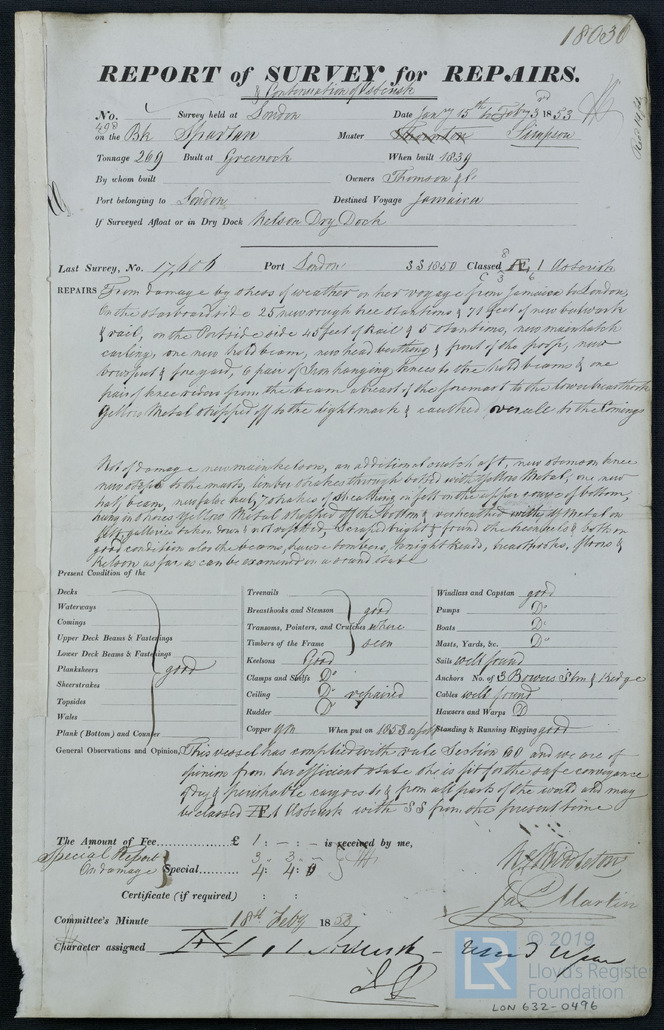 18030
REPORT of SURVEY for REPAIRS.
& Continuation of Asterisk
No. Survey held at London Date Jany 15th to Feby 3rd 1853
on the Bk Spartan Master Thornton Simpson
Tonnage 269 Built at Greenock When built 1839
By whom built Owners Thomson & Co
Port belonging to London Destined Voyage Jamaica
If Surveyed Afloat or in Dry Dock Nelson Dry Dock
Last Survey, No. 17606 Port London SS 1850 Classed Æ 1 Asterisk
REPAIRS From damage by stress of weather on her voyage from Jamaica to London,
On the starboard side 25 new rough tree stantions & 71 feet of new bulwark
& rail, on the Port side 45 feet of Rail & 5 stantions, new main hatch
carling, one new hold beam, new head berthing & front of the poop, new
bowsprit & foreyard, 6 pair of Iron hanging knees to the hold beams & one
pair of knee riders from the beam abreast of the foremast to the lower breasthook
Yellow Metal stripped off to the light mark & caulked over all to the Comings
Not of damage new main kelson, an additional scutch aft, new stemson knee
new steps to the masts, limber strakes through bolted with Yellow Metal, one new
half beam, new false keel, 7 strakes of sheathing on felt on the upper course of bottom,
Yellow Metal stripped off the bottom & resheathed with Y Metal on
felt, galleries taken down & not refitted, scraped bright & found the treenails & bolts in
good condition also the beams, hawse timbers, knight heads, breasthooks, floors &
Kelson as far as can be examined in a sound state
Present Condition of the
Decks
Waterways
Comings
Upper Deck Beams & Fastenings
Lower Deck Beams & Fastenings
Planksheers good
Sheerstrakes
Topsides
Wales
Plank (Bottom) and Counter
Treenails
Breasthooks and Stemson good
Transoms, Pointers, and Crutches where
Timbers of the Frame seen
Keelsons Good
Clamps and Shelfs Do
Ceiling Do repaired
Rudder D
Copper YM When put on 1853 on felt
Windlass and Capstan good
Pumps Do
Boats Do
Masts, Yards, &c. Do
Sails well found
Anchors No. of 3 Bowers Stm & Kedge
Cables well found
Hawsers and Warps D
Standing & Running Rigging good
General Observations and Opinion, This vessel has complied with rule Section 60 and we are of
opinion from her efficient state she is fit for the safe conveyance
of dry & perishable cargoes to & from all parts of the world and may
be classed Æ 1 Asterisk with SS from the present time
The Amount of Fee...... £ 1 : - : - is received by me,
Special Report 3 3 -
On damage Special...... 4 : 4 : 0
Certificate (if required) : :
Jas Martin
Committee's Minute 18th Feby 1853
Character assigned Æ 1 Asterisk
© 2019
LR
Lloyd's Register
Foundation
LON 632-0496